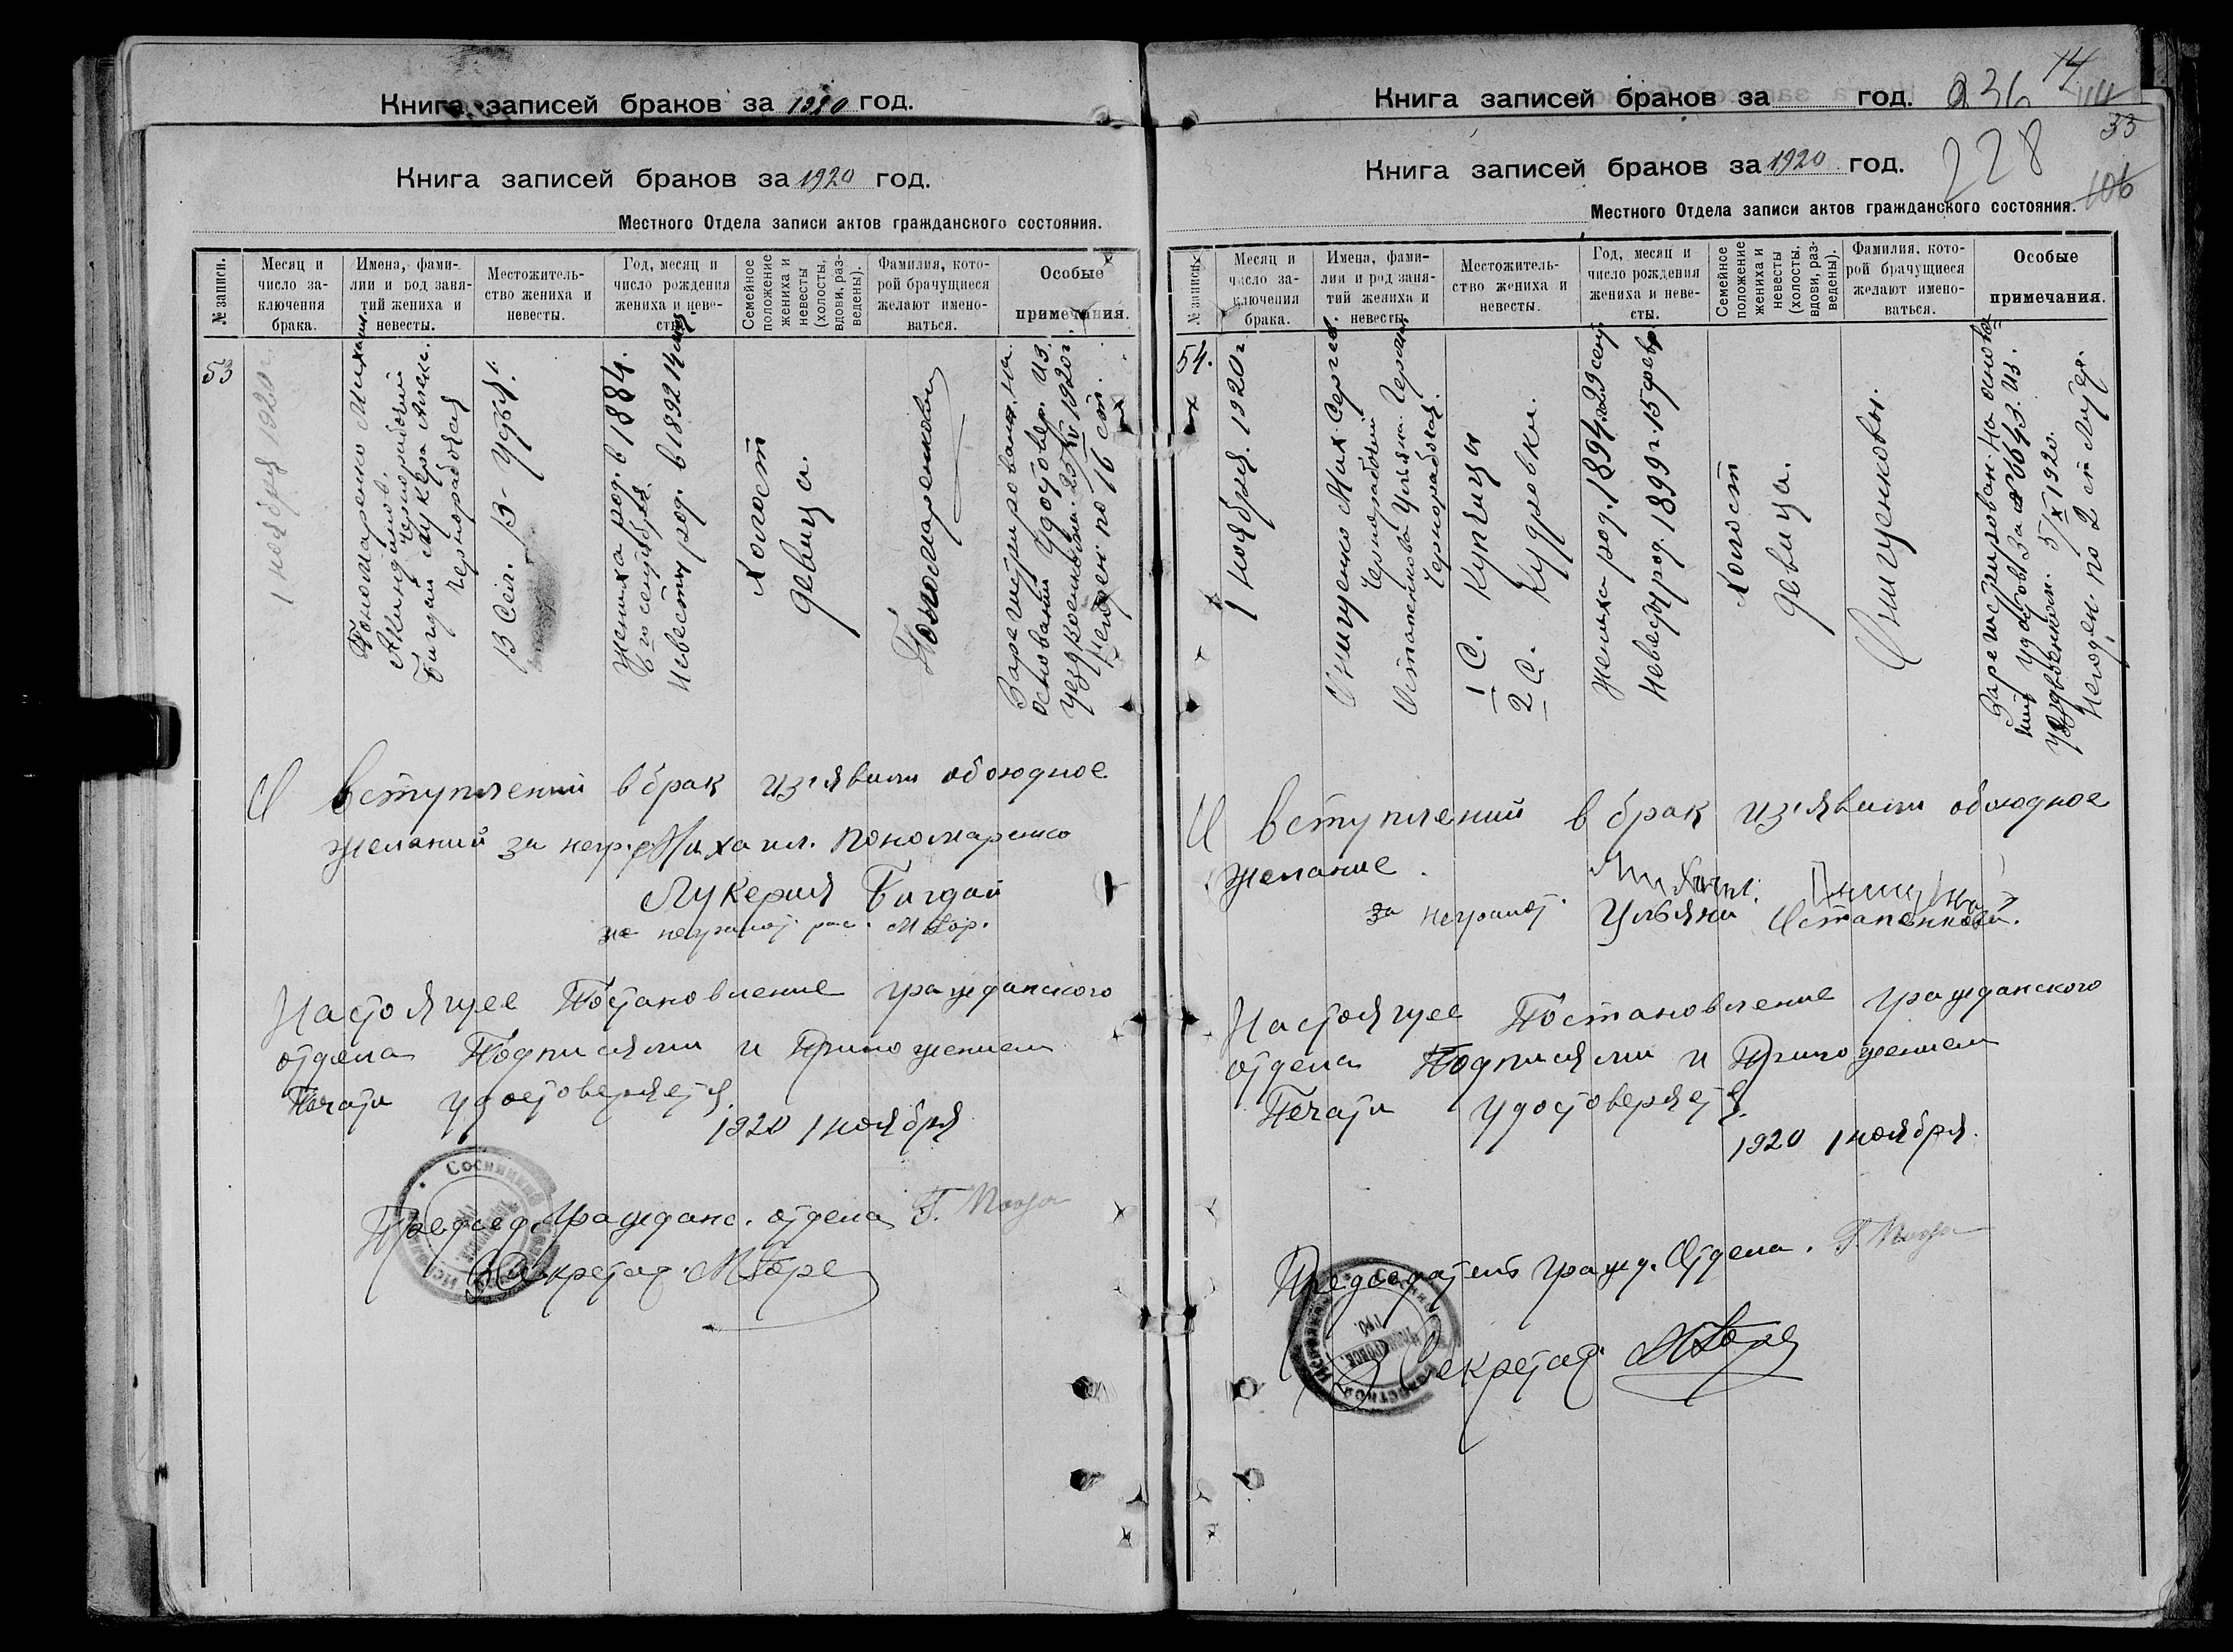 Книга записей браков за 1920 год.
Книга записей браков за 1920 год.
Местного Отдела записи актов гражданского состояния.
№ записи.
Месяц и число заключения брака.
Имена, фамилии и род занятий жениха и невесты.
Местожительство жениха и невесты.
Год, месяц и число рождения жениха и невесты.
Семейное положение жениха и невесты (холосты, вдовы, разведены).
Фамилия, которой брачущиеся желают именоваться.
Особые примечания.
53
1 ноября 1920 г.
Пономаренко Михаил
Чернорабочий
Бигдай Лукера Алекс.
Чернорабочая
Жениха род. в 1884.
6го сентября
Невесты род. в 1892 14
Холост
девица.
Пономаренковы
Зарегистрирован. на
оснований Удостовер. Из.
1920 г
по 16 ст.
И вступлений в брак изъявили обоюдное
желаний за негр. Михаил. Пономаренко
Лукерия Бигдай
за неграмот. рас. М Гор.
Настоящее Постановление гражданского
отдела Подписями и Приложением
Печати удостоверяется.
1920 1 ноября
Председ. Гражданс. отдела Г.
Секретар. М Горе
Книга записей браков за год. 236 14
Книга записей браков за 1920 год. 228 33
106
Местного Отдела записи актов гражданского состояния.
№ записи.
Месяц и число заключения брака.
Имена, фамилии и род занятий жениха и невесты.
Местожительство жениха и невесты.
Год, месяц и число рождения жениха и невесты.
Семейное положение жениха и невесты (холосты, вдовы, разведены).
Фамилия, которой брачущиеся желают именоваться.
Особые примечания.
54.
1 ноября. 1920 г
Онищенко Мих. Сергее.
Чернорабочий
Остапенкова Ульяна. Герасим
Чернорабочая.
1 С. Купчицы
2 С. Кудровки.
Жениха род. 1894 г. 29 сент.
Невесты род. 1899 г. 15 февр.
Холост
девица.
Онищенковы.
Зарегистрирован. на основа
ний Удостов За № 6643. Из.
5/X 1920.
по 2 ст
И вступлений в брак изъявили обоюдное
желание.
Михаил. Онищенко
за неграмот. Ульяни Остапенковой.
Настоящее Постановление гражданского
отдела Подписями и Приложением
Печати удостоверяется.
1920 1 ноября.
Председатель гражд. Отдела. Г.
Секретар. М Горе